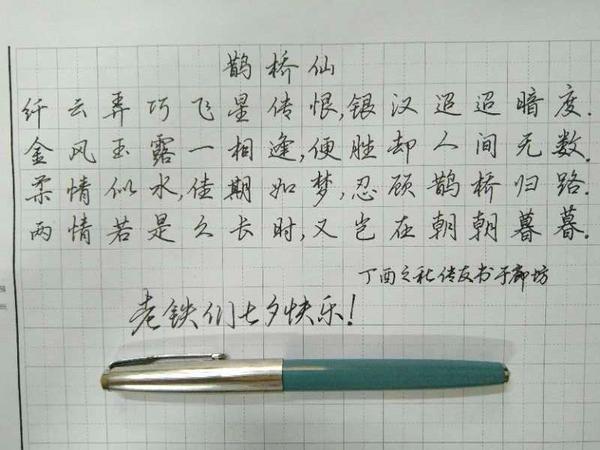 鹊桥仙
纤云弄巧飞星传恨,银汉迢迢暗度.
金风玉露一相逢,便胜却人间无数.
柔情似水,佳期如梦,忍顾鹊桥归路.
两情若是久长时,又岂在朝朝暮暮.
丁酉之秋传友书于廊坊
老铁们七夕快乐!